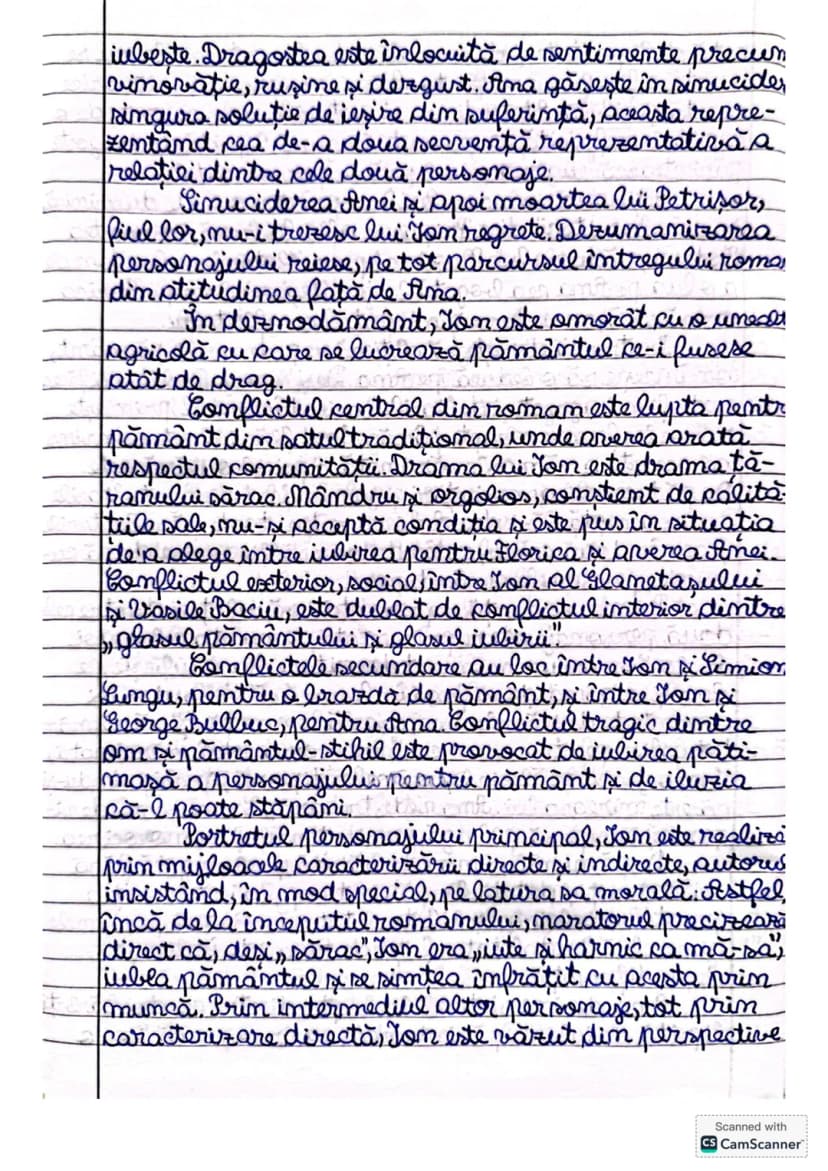 iubește. Dragostea este înlocuită de sentimente precum
vinovăție, rușine și dezgust. Ana găsește în sinucidere
singura soluție de ieșire din suferință, aceasta repre-
zentând cea de-a doua secvență reprezentativă a
relației dintre cele două personaje.
Sinuciderea Anei și apoi moartea lui Petrișor,
fiul lor, nu-i trezesc lui Ion regrete. Dezumanizarea
personajului reiese, pe tot parcursul întregului roman
din atitudinea față de Ana.
În deznodământ, Ion este omorât cu o unealt
agricolă cu care se lucrează pământul ce-i fusese
atât de drag.
Conflictul central din roman este lupta pentr
pământ din satul tradițional, unde averea arată
respectul comunității. Drama lui Ion este drama ță-
ranului sărac. Mândru și orgolios, conștient de calită-
țiile sale, nu-și acceptă condiția și este pus în situația
de a alege între iubirea pentru Florica și averea Anei.
Conflictul exterior, social, între Ion al Glanetașului
și Vasile Baciu, este dublat de conflictul interior dintre
„glasul pământului și glasul iubirii".
Conflictele secundare au loc între Ion și Simion
Lungu, pentru o brazdă de pământ, și între Ion și
George Bulbuc, pentru Ana. Conflictul tragic dintre
om și pământul-stihil este provocat de iubirea păti-
mașă a personajului pentru pământ și de iluzia
că-l poate stăpâni.
Portretul personajului principal, Ion este realiza
prin mijloacele caracterizării directe și indirecte, autorul
insistând, în mod special, pe latura sa morală. Astfel,
încă de la începutul romanului, naratorul precizează
direct că, deși „sărac", Ion era „iute și harnic ca mă-sa",
iubea pământul și se simțea înfrățit cu acesta prin
muncă. Prin intermediul altor personaje, tot prin
caracterizare directă, Ion este văzut din perspective
Scanned with
CS CamScanner